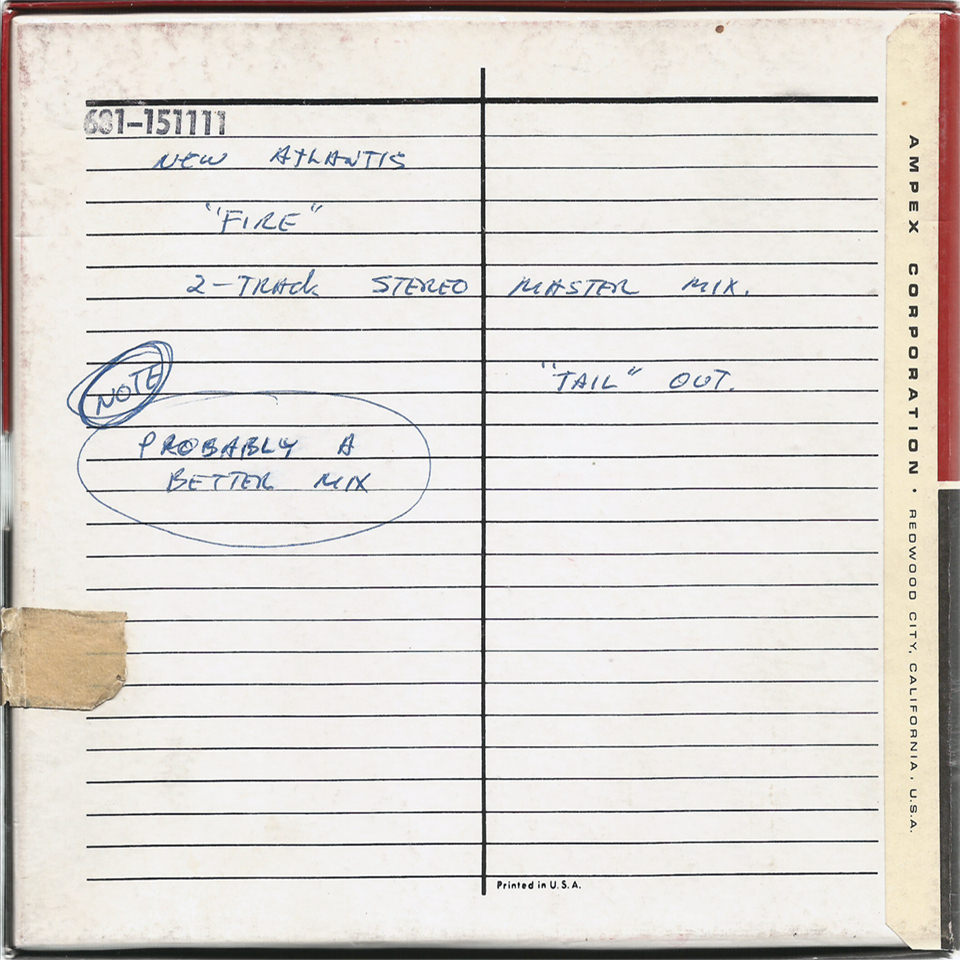 631-151111
NEW ATLANTIS
"FIRE"
2-TRACK STEREO MASTER MIX.
"TAIL" OUT.
NOTE
PROBABLY A
BETTER MIX
Printed in U.S.A.
AMPEX CORPORATION • REDWOOD CITY, CALIFORNIA, U.S.A.